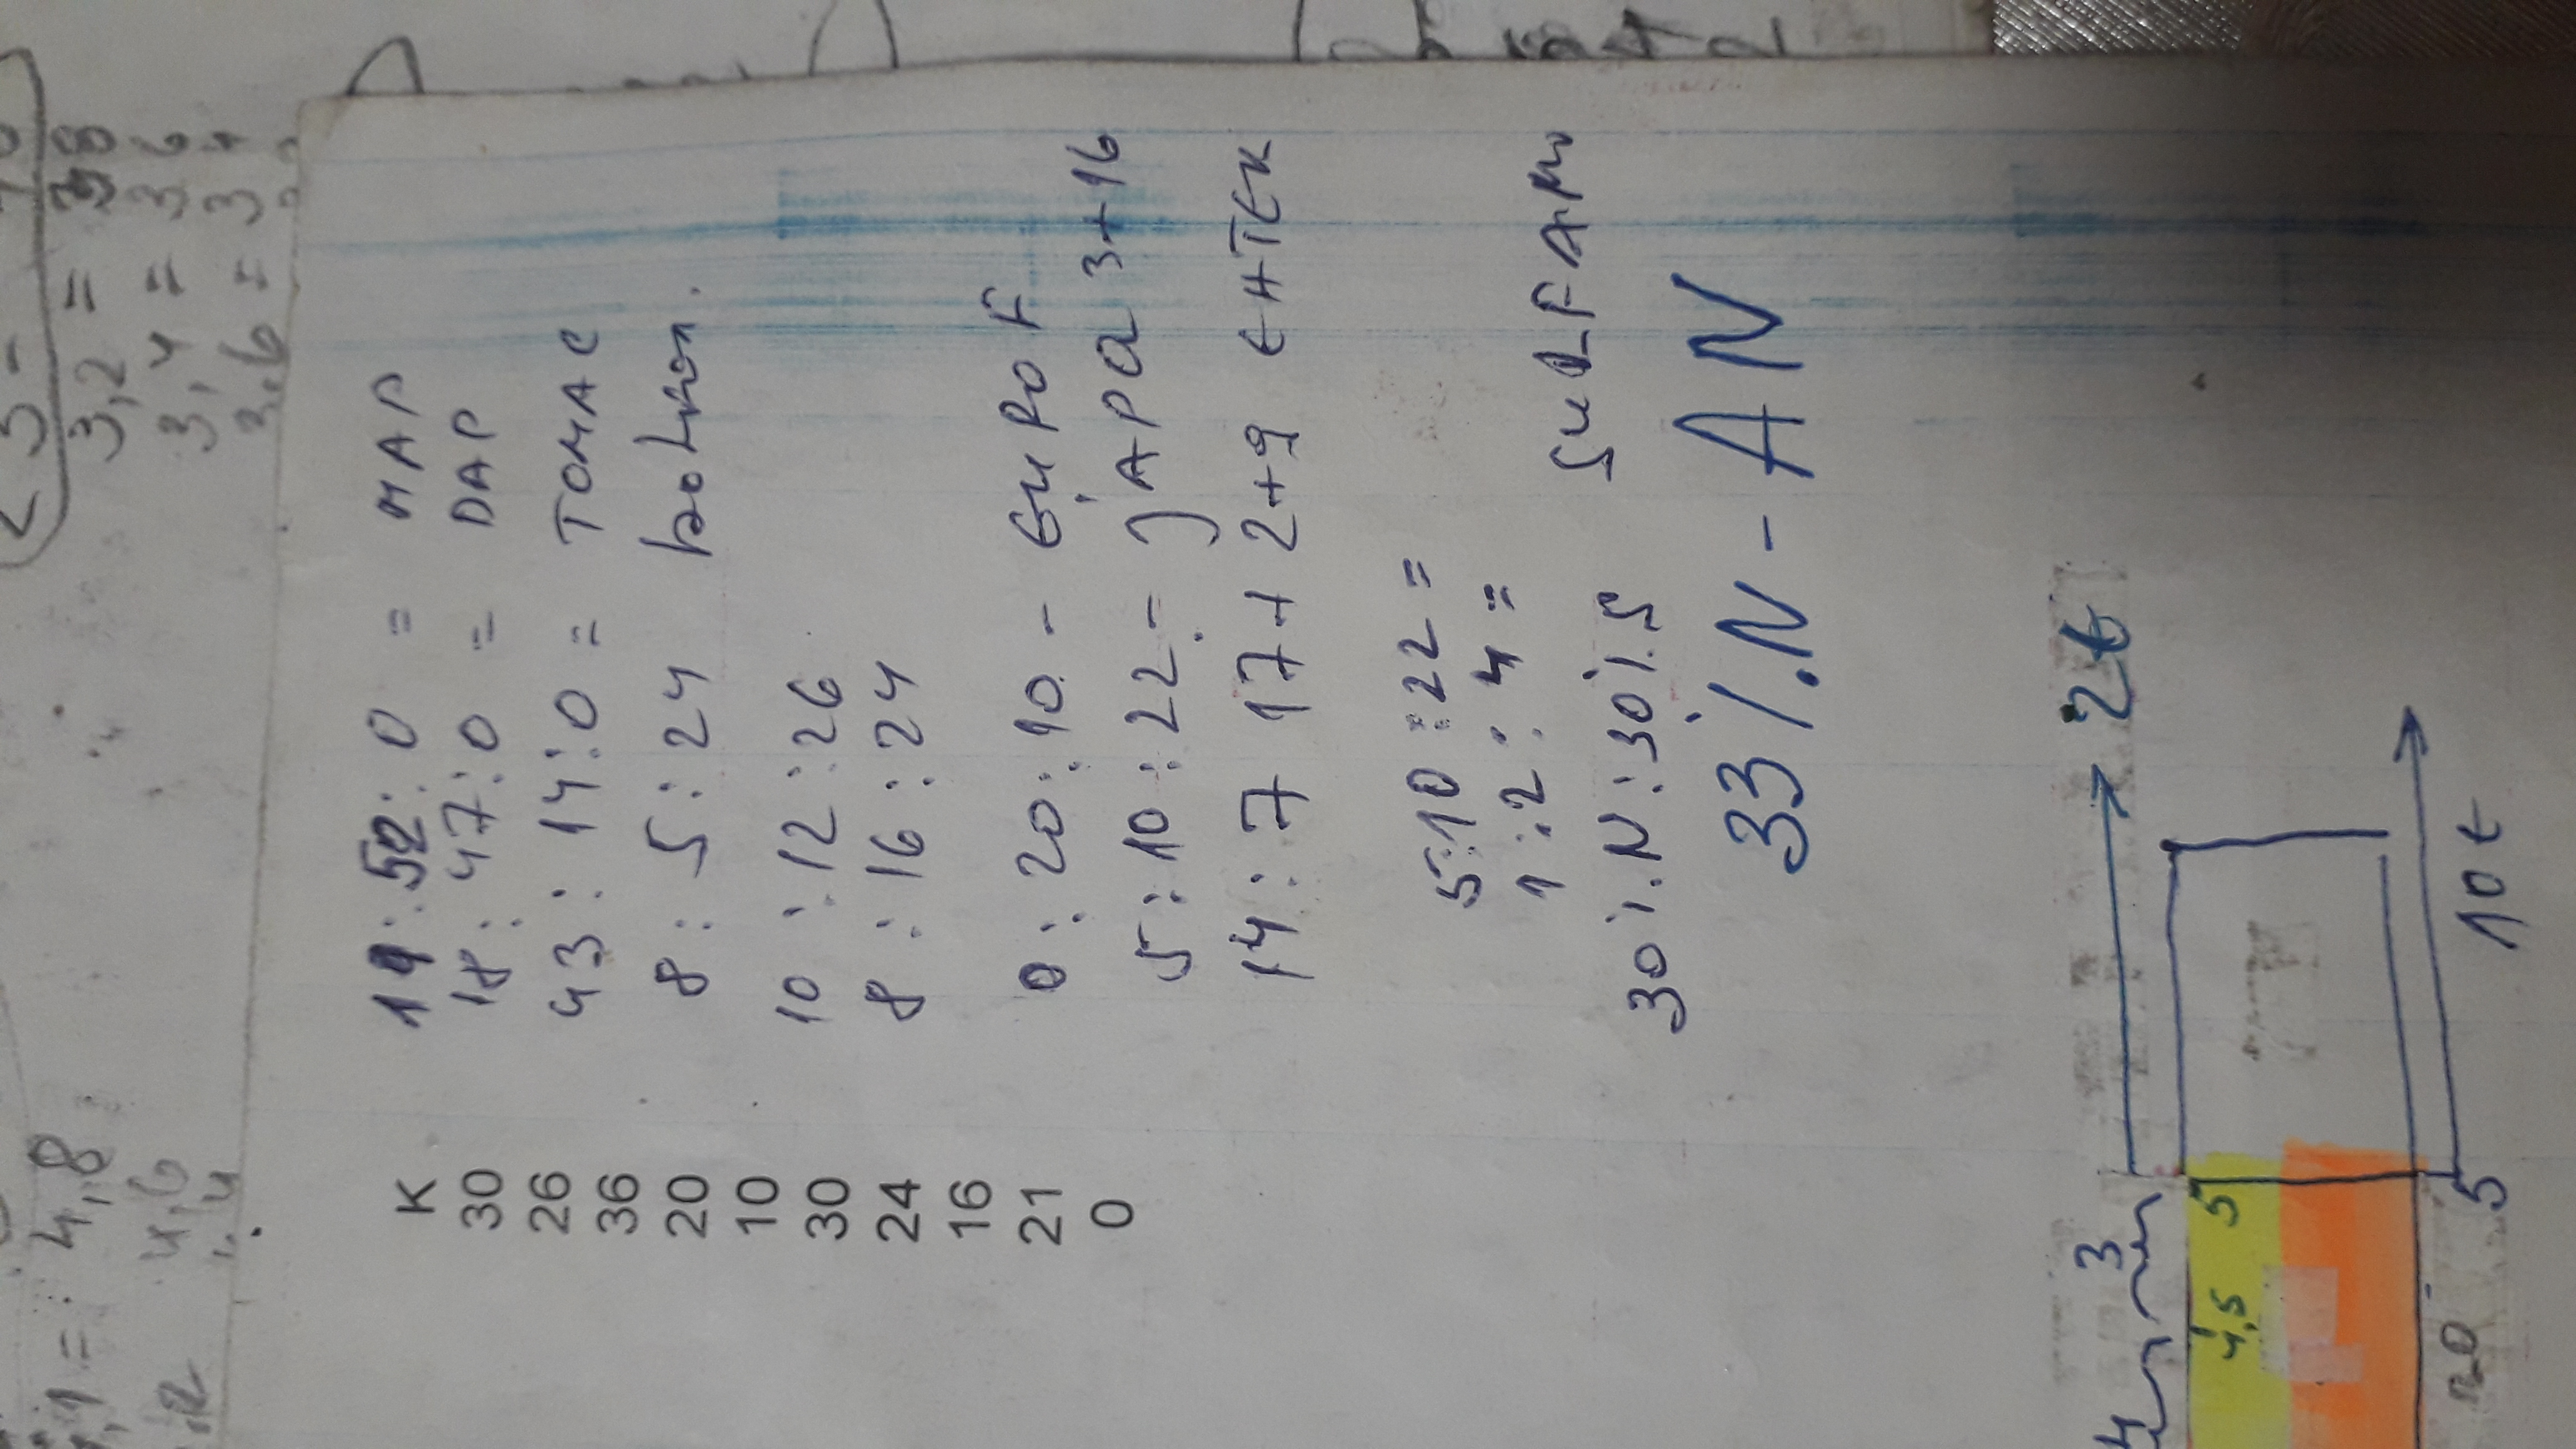 4,8
4,6
3,2 = 38
3,4 = 36
3,6 = 3
K
30
26
36
20
10
30
24
16
21
0
19:52:0 = MAP
18:47:0 = DAP
43:14:0 = TOMAC
8:5:24
10:12:26
8:16:24
0:20:10 - EUROF
5:10:22 - JARA 3+16
14:7 17+2+9 ENTEK
5:10:22 =
1:2:4 =
30%N:30%S SULFAMO
33%N-AN
4 3 2t
4,5 5
20 5 10t